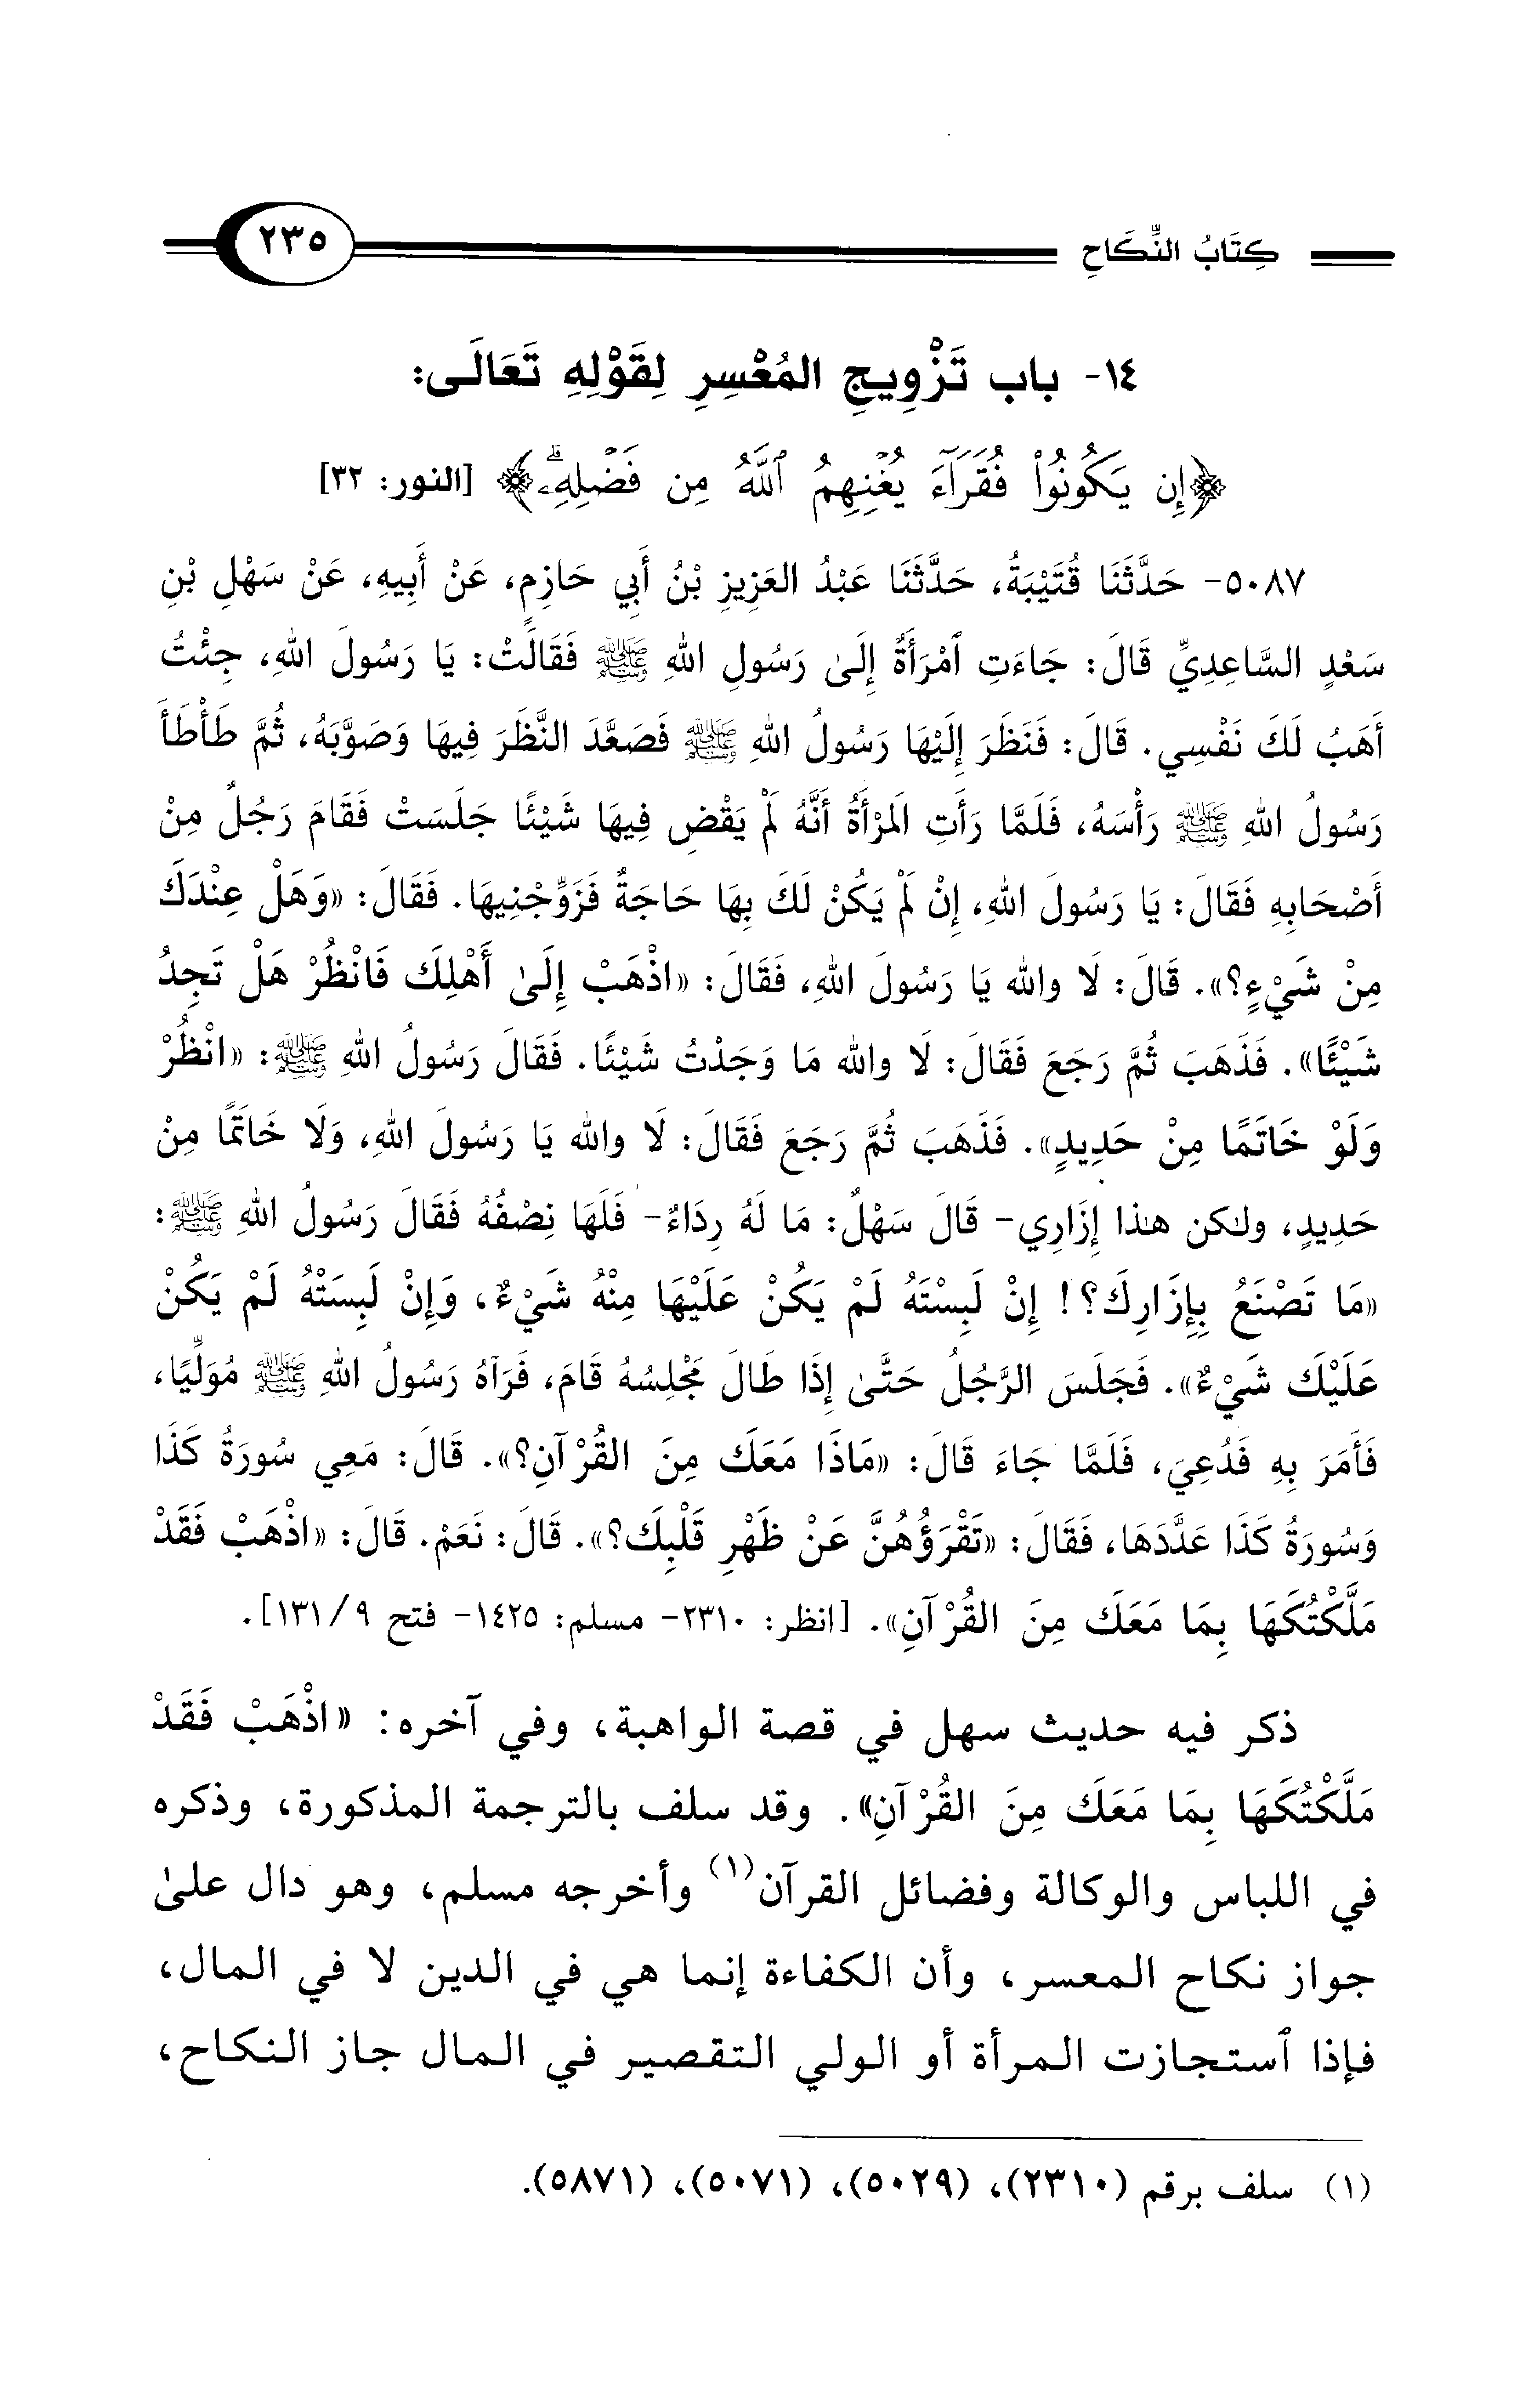 كِتَابُ النِّكَاحِ
٢٣٥
١٤- باب تَزْوِيجِ المُعْسِرِ لِقَوْلِهِ تَعَالَى:
﴿إِن يَكُونُوا۟ فُقَرَآءَ يُغْنِهِمُ ٱللَّهُ مِن فَضْلِهِۦۗ﴾ [النور: ٣٢]
٥٠٨٧- حَدَّثَنَا قُتَيْبَةُ، حَدَّثَنَا عَبْدُ العَزِيزِ بْنُ أَبِي حَازِمٍ، عَنْ أَبِيهِ، عَنْ سَهْلِ بْنِ
سَعْدٍ السَّاعِدِيِّ قَالَ: جَاءَتِ ٱمْرَأَةٌ إِلَىٰ رَسُولِ اللهِ ﷺ فَقَالَتْ: يَا رَسُولَ اللهِ، جِئْتُ
أَهَبُ لَكَ نَفْسِي. قَالَ: فَنَظَرَ إِلَيْهَا رَسُولُ اللهِ ﷺ فَصَعَّدَ النَّظَرَ فِيهَا وَصَوَّبَهُ، ثُمَّ طَأْطَأَ
رَسُولُ اللهِ ﷺ رَأْسَهُ، فَلَمَّا رَأَتِ الَمرْأَةُ أَنَّهُ لَمْ يَقْضِ فِيهَا شَيْئًا جَلَسَتْ فَقَامَ رَجُلٌ مِنْ
أَصْحَابِهِ فَقَالَ: يَا رَسُولَ اللهِ، إِنْ لَمْ يَكُنْ لَكَ بِهَا حَاجَةٌ فَزَوِّجْنِيهَا. فَقَالَ: «وَهَلْ عِنْدَكَ
مِنْ شَيْءٍ؟». قَالَ: لَا والله يَا رَسُولَ اللهِ، فَقَالَ: «اذْهَبْ إِلَىٰ أَهْلِكَ فَانْظُرْ هَلْ تَجِدُ
شَيْئًا». فَذَهَبَ ثُمَّ رَجَعَ فَقَالَ: لَا والله مَا وَجَدْتُ شَيْئًا. فَقَالَ رَسُولُ اللهِ ﷺ: «انْظُرْ
وَلَوْ خَاتَمًا مِنْ حَدِيدٍ». فَذَهَبَ ثُمَّ رَجَعَ فَقَالَ: لَا والله يَا رَسُولَ اللهِ، وَلَا خَاتَمًا مِنْ
حَدِيدٍ، ولكن هذا إِزَارِي- قَالَ سَهْلٌ: مَا لَهُ رِدَاءٌ- فَلَهَا نِصْفُهُ فَقَالَ رَسُولُ اللهِ ﷺ:
«مَا تَصْنَعُ بِإِزَارِكَ؟! إِنْ لَبِسْتَهُ لَمْ يَكُنْ عَلَيْهَا مِنْهُ شَيْءٌ، وَإِنْ لَبِسَتْهُ لَمْ يَكُنْ
عَلَيْكَ شَيْءٌ». فَجَلَسَ الرَّجُلُ حَتَّىٰ إِذَا طَالَ مَجْلِسُهُ قَامَ، فَرَآهُ رَسُولُ اللهِ ﷺ مُوَلِّيًا،
فَأَمَرَ بِهِ فَدُعِيَ، فَلَمَّا جَاءَ قَالَ: «مَاذَا مَعَكَ مِنَ القُرْآنِ؟». قَالَ: مَعِي سُورَةُ كَذَا
وَسُورَةُ كَذَا عَدَّدَهَا، فَقَالَ: «تَقْرَؤُهُنَّ عَنْ ظَهْرِ قَلْبِكَ؟». قَالَ: نَعَمْ. قَالَ: «اذْهَبْ فَقَدْ
مَلَّكْتُكَهَا بِمَا مَعَكَ مِنَ القُرْآنِ». [انظر: ٢٣١٠- مسلم: ١٤٢٥- فتح ٩/ ١٣١].
ذكر فيه حديث سهل في قصة الواهبة، وفي آخره: «اذْهَبْ فَقَدْ
مَلَّكْتُكَهَا بِمَا مَعَكَ مِنَ القُرْآنِ». وقد سلف بالترجمة المذكورة، وذكره
في اللباس والوكالة وفضائل القرآن(١) وأخرجه مسلم، وهو دال علىٰ
جواز نكاح المعسر، وأن الكفاءة إنما هي في الدين لا في المال،
فإذا ٱستجازت المرأة أو الولي التقصير في المال جاز النكاح،
(١) سلف برقم (٢٣١٠)، (٥٠٢٩)، (٥٠٧١)، (٥٨٧١).